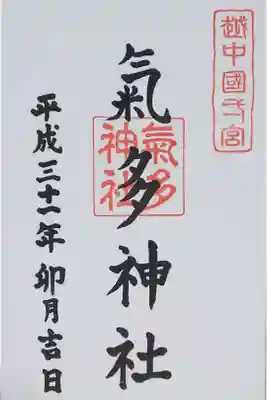 越中國一宮
氣多神社
氣多
神社
平成三十一年 卯月吉日